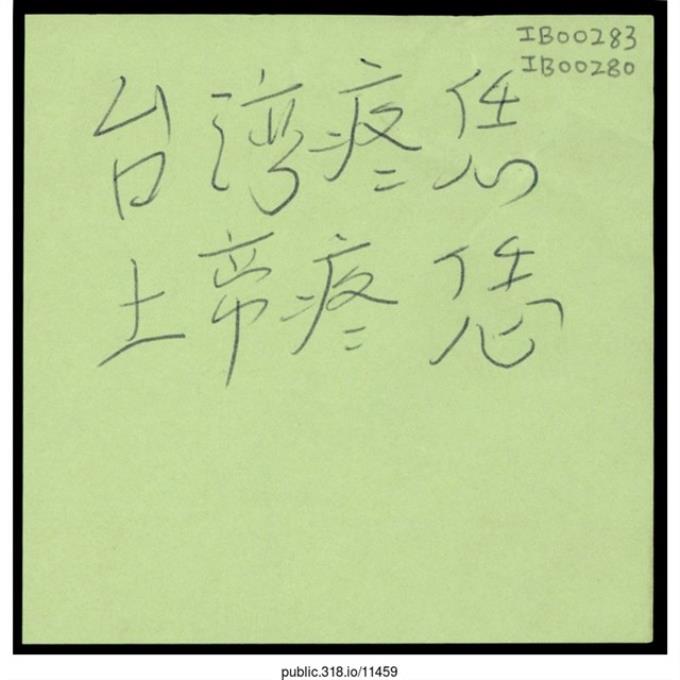 IB00283
IB00280
台湾疼恁
上帝疼恁
public.318.io/11459